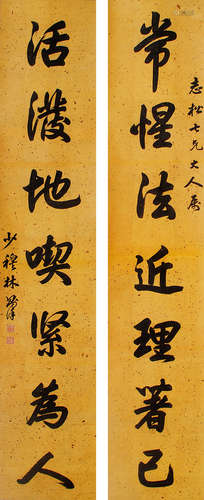 常惺法近理著己
志松七兄大人属
活潑地喫緊為人
少穆林則徐